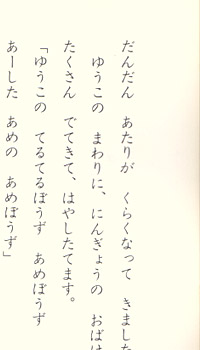 だんだん　あたりが　くらくなって　きました
ゆうこの　まわりに、にんぎょうの　おばけ
たくさん　でてきて、はやしたてます。
「ゆうこの　てるてるぼうず　あめぼうず
あーした　あめの　あめぼうず」